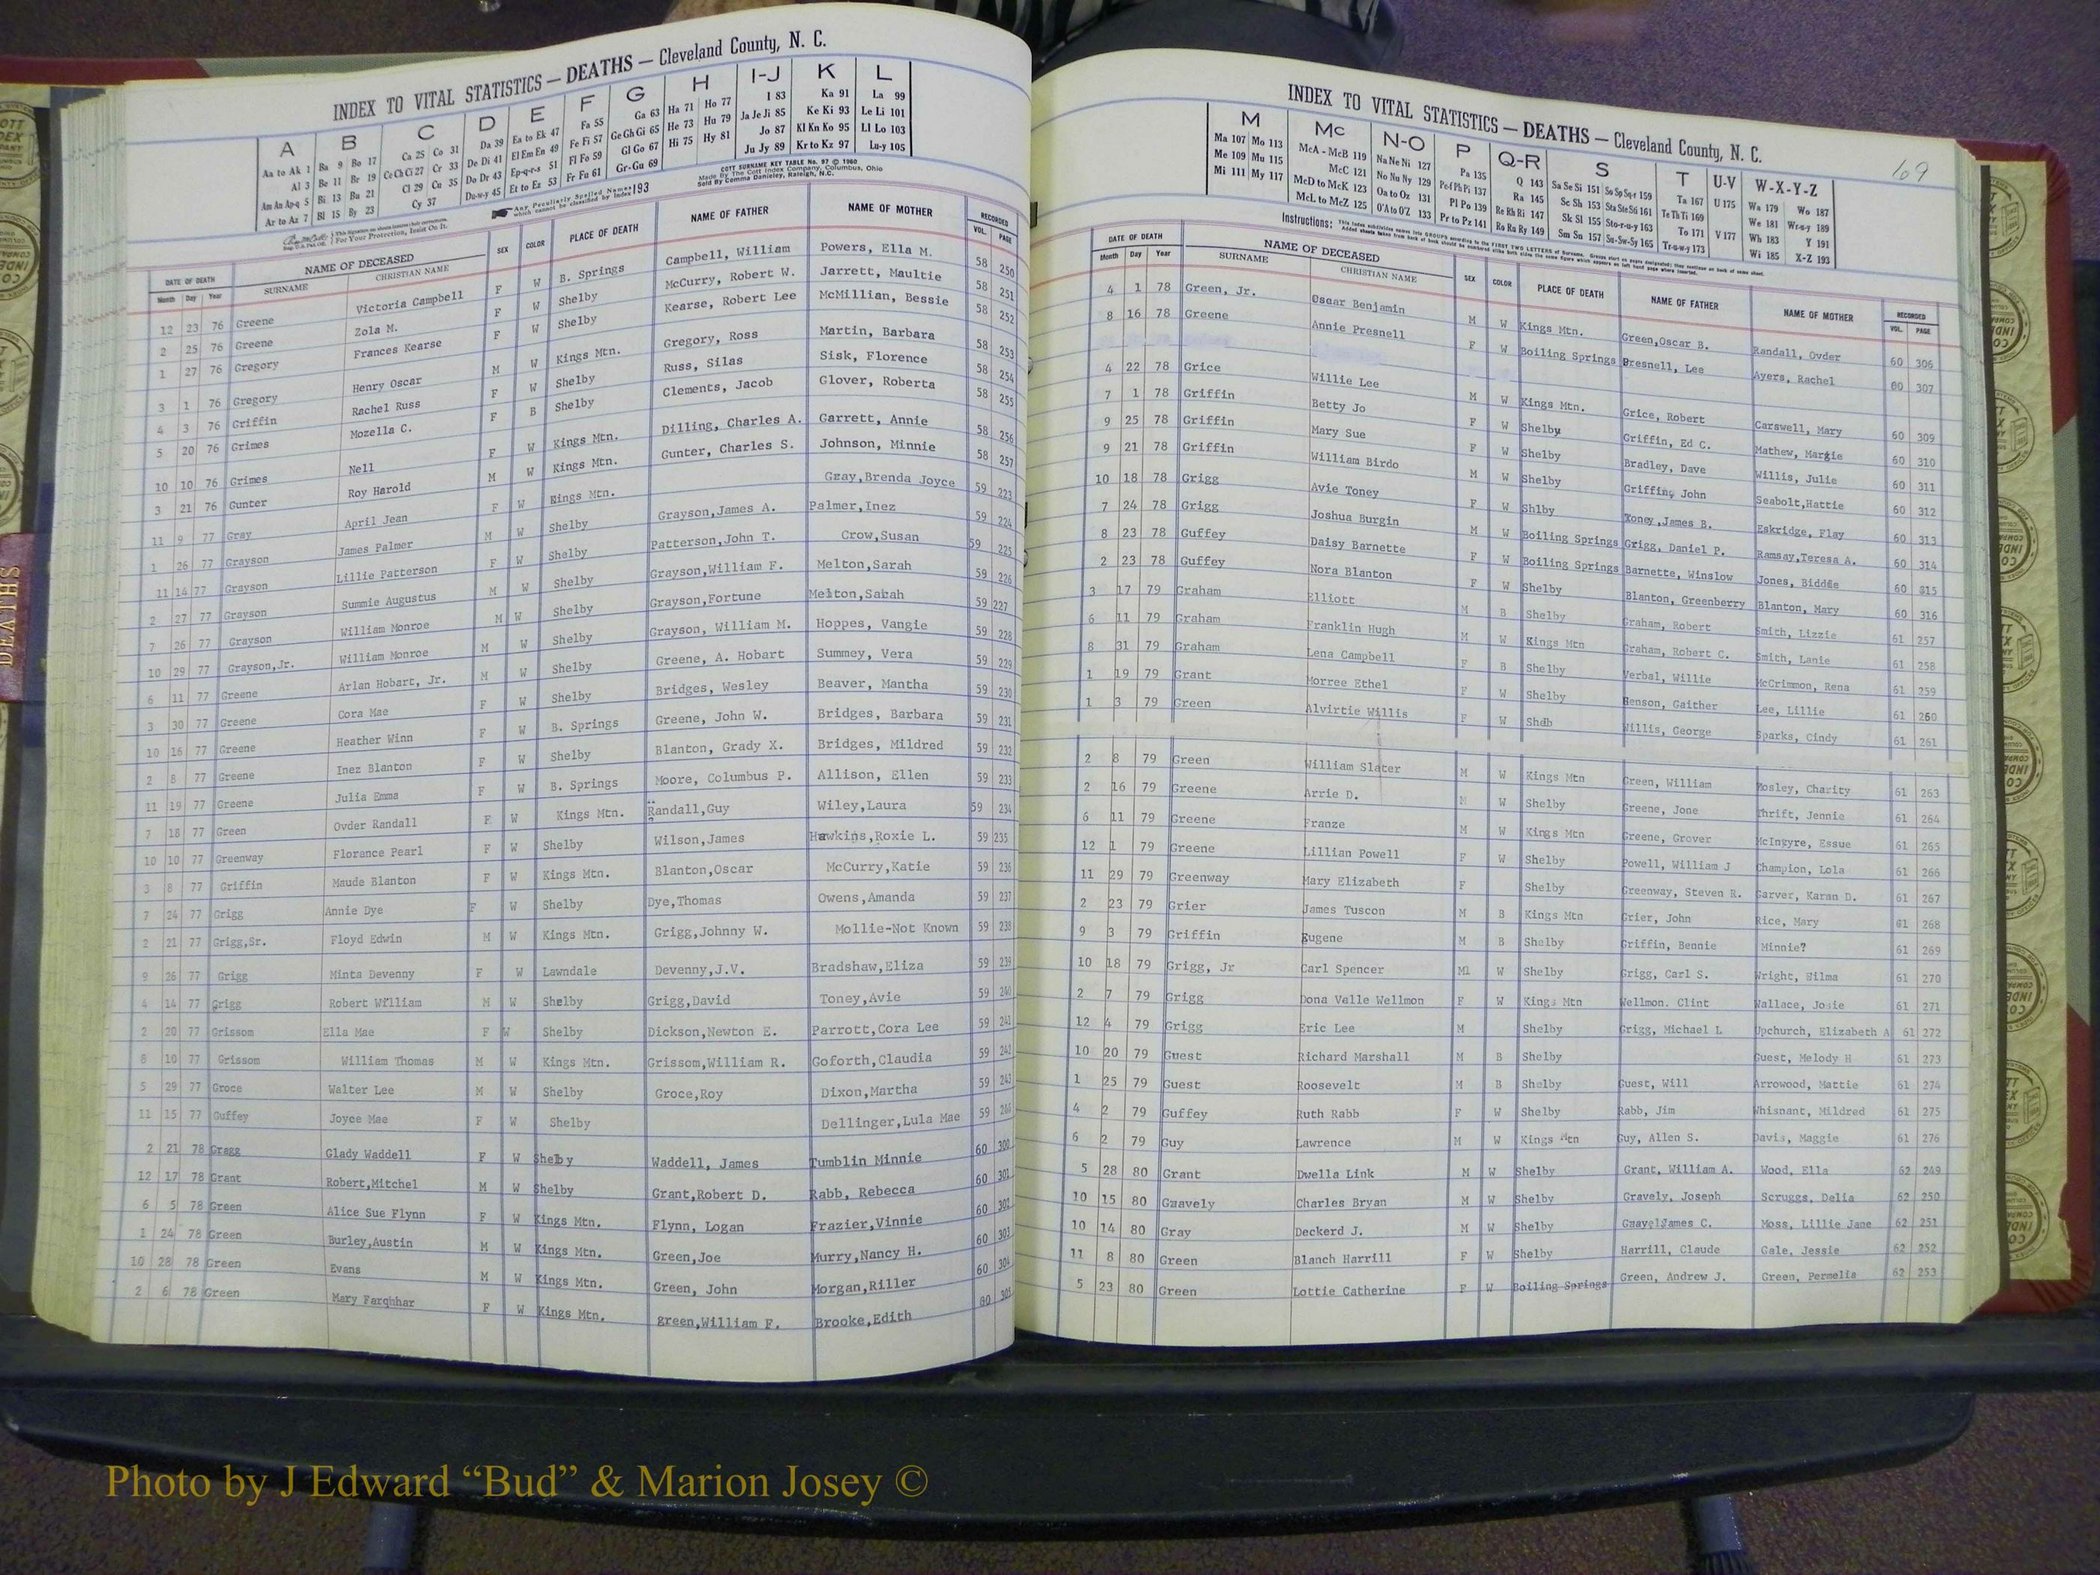 INDEX TO VITAL STATISTICS — DEATHS — Cleveland County, N. C.
A B C D E F G H I-J K L
Aa to Ak 1 Ba 9 Bo 17 Ca 25 Co 31 Da 39 Ea to Ek 47 Fa 55 Ga 63 Ha 71 Ho 77 I 83 Ka 91 La 99
Al 3 Be 11 Br 19 Ce Ch Ci 27 Cr 33 De Di 41 El Em En 49 Fe Fi 57 Ge Gh Gi 65 He 73 Hu 79 Ja Je Ji 85 Ke Ki 93 Le Li 101
Am An Ap-q 5 Bi 13 Bu 21 Cl 29 Cu 35 Do Dr 43 Ep-q-r-s 51 Fl Fo 59 Gl Go 67 Hi 75 Hy 81 Jo 87 Kl Kn Ko 95 Ll Lo 103
Ar to Az 7 Bl 15 By 23 Cy 37 Du-w-y 45 Et to Ez 53 Fr Fu 61 Gr-Gu 69 Ju Jy 89 Kr to Kz 97 Lu-y 105
Any Peculiarly Spelled Names which cannot be classified by Index 193
COTT SURNAME KEY TABLE No. 97 © 1960
Made By The Cott Index Company, Columbus, Ohio
Sold By Comma Danieley, Raleigh, N.C.
For Your Protection, Insist On It.
DATE OF DEATH NAME OF DECEASED SEX COLOR PLACE OF DEATH NAME OF FATHER NAME OF MOTHER RECORDED
Month Day Year SURNAME CHRISTIAN NAME VOL. PAGE
12 23 76 Greene Victoria Campbell F W B. Springs Campbell, William Powers, Ella M. 58 250
2 25 76 Greene Zola M. F W Shelby McCurry, Robert W. Jarrett, Maultie 58 251
1 27 76 Gregory Frances Kearse F W Shelby Kearse, Robert Lee McMillian, Bessie 58 252
3 1 76 Gregory Henry Oscar M W Kings Mtn. Gregory, Ross Martin, Barbara 58 253
4 3 76 Griffin Rachel Russ F W Shelby Russ, Silas Sisk, Florence 58 254
5 20 76 Grimes Mozella C. F B Shelby Clements, Jacob Glover, Roberta 58 255
10 10 76 Grimes Nell F W Kings Mtn. Dilling, Charles A. Garrett, Annie 58 256
3 21 76 Gunter Roy Harold M W Kings Mtn. Gunter, Charles S. Johnson, Minnie 58 257
11 9 77 Gray April Jean F W Kings Mtn. Gray,Brenda Joyce 59 223
1 26 77 Grayson James Palmer M W Shelby Grayson,James A. Palmer,Inez 59 224
11 14 77 Grayson Lillie Patterson F W Shelby Patterson,John T. Crow,Susan 59 225
2 27 77 Grayson Summie Augustus M W Shelby Grayson,William F. Melton,Sarah 59 226
7 26 77 Grayson William Monroe M W Shelby Grayson,Fortune Melton,Sarah 59 227
10 29 77 Grayson,Jr. William Monroe M W Shelby Grayson, William M. Hoppes, Vangie 59 228
6 11 77 Greene Arlan Hobart, Jr. M W Shelby Greene, A. Hobart Summey, Vera 59 229
3 30 77 Greene Cora Mae F W Shelby Bridges, Wesley Beaver, Mantha 59 230
10 16 77 Greene Heather Winn F W B. Springs Greene, John W. Bridges, Barbara 59 231
2 8 77 Greene Inez Blanton F W Shelby Blanton, Grady X. Bridges, Mildred 59 232
11 19 77 Greene Julia Emma F W B. Springs Moore, Columbus P. Allison, Ellen 59 233
7 18 77 Green Ovder Randall F W Kings Mtn. Randall,Guy Wiley,Laura 59 234
10 10 77 Greenway Florance Pearl F W Shelby Wilson,James Hawkins,Roxie L. 59 235
3 8 77 Griffin Maude Blanton F W Kings Mtn. Blanton,Oscar McCurry,Katie 59 236
7 24 77 Grigg Annie Dye F W Shelby Dye,Thomas Owens,Amanda 59 237
2 21 77 Grigg,Sr. Floyd Edwin M W Kings Mtn. Grigg,Johnny W. Mollie-Not Known 59 238
9 26 77 Grigg Minta Devenny F W Lawndale Devenny,J.V. Bradshaw,Eliza 59 239
4 14 77 Grigg Robert William M W Shelby Grigg,David Toney,Avie 59 240
2 20 77 Grissom Ella Mae F W Shelby Dickson,Newton E. Parrott,Cora Lee 59 241
8 10 77 Grissom William Thomas M W Kings Mtn. Grissom,William R. Goforth,Claudia 59 242
5 29 77 Groce Walter Lee M W Shelby Groce,Roy Dixon,Martha 59 243
11 15 77 Guffey Joyce Mae F W Shelby Dellinger,Lula Mae 59
2 21 78 Gragg Glady Waddell F W Shelby Waddell, James Tumblin Minnie 60 300
12 17 78 Grant Robert,Mitchel M W Shelby Grant,Robert D. Rabb, Rebecca 60 301
6 5 78 Green Alice Sue Flynn F W Kings Mtn. Flynn, Logan Frazier,Vinnie 60 302
1 24 78 Green Burley,Austin M W Kings Mtn. Green,Joe Murry,Nancy H. 60 303
10 28 78 Green Evans M W Kings Mtn. Green, John Morgan,Riller 60 304
2 6 78 Green Mary Farqhhar F W Kings Mtn. green,William F. Brooke,Edith 60 305
INDEX TO VITAL STATISTICS — DEATHS — Cleveland County, N. C.
69
M Mc N-O P Q-R S T U-V W-X-Y-Z
Ma 107 Mo 113 McA - McB 119 Na Ne Ni 127 Pa 135 Q 143 Sa Se Si 151 So Sp Sq-r 159 Ta 167 U 175 Wa 179 Wo 187
Me 109 Mu 115 McC 121 No Nu Ny 129 Pe-f Ph Pi 137 Ra 145 Sc Sh 153 Sta Ste Sti 161 Te Th Ti 169 We 181 Wr-u-y 189
Mi 111 My 117 McD to McK 123 Oa to Oz 131 Pl Po 139 Re Rh Ri 147 Sk Sl 155 Sto-r-u-y 163 To 171 V 177 Wh 183 Y 191
McL to McZ 125 O'A to O'Z 133 Pr to Pz 141 Ro Ru Ry 149 Sm Sn 157 Su-Sw-Sy 165 Tr-u-w-y 173 Wi 185 X-Z 193
Instructions:
DATE OF DEATH NAME OF DECEASED SEX COLOR PLACE OF DEATH NAME OF FATHER NAME OF MOTHER RECORDED
Month Day Year SURNAME CHRISTIAN NAME VOL. PAGE
4 1 78 Green, Jr. Oscar Benjamin M W Kings Mtn. Green,Oscar B. Randall, Ovder 60 306
8 16 78 Greene Annie Presnell F W Boiling Springs Presnell, Lee Ayers, Rachel 60 307
4 22 78 Grice Willie Lee M W Kings Mtn. Grice, Robert Carswell, Mary 60 309
7 1 78 Griffin Betty Jo F W Shelby Griffin, Ed C. Mathew, Margie 60 310
9 25 78 Griffin Mary Sue F W Shelby Bradley, Dave Willis, Julie 60 311
9 21 78 Griffin William Birdo M W Shelby Griffin, John Seabolt,Hattie 60 312
10 18 78 Grigg Avie Toney F W Shlby Toney,James B. Eskridge, Flay 60 313
7 24 78 Grigg Joshua Burgin M W Boiling Springs Grigg, Daniel P. Ramsay,Teresa A. 60 314
8 23 78 Guffey Daisy Barnette F W Boiling Springs Barnette, Winslow Jones, Biddie 60 315
2 23 78 Guffey Nora Blanton F W Shelby Blanton, Greenberry Blanton, Mary 60 316
3 17 79 Graham Elliott M B Shelby Graham, Robert Smith, Lizzie 61 257
6 11 79 Graham Franklin Hugh M W Kings Mtn Graham, Robert C. Smith, Lanie 61 258
8 31 79 Graham Lena Campbell F B Shelby Verbal, Willie McCrimmon, Rena 61 259
1 19 79 Grant Morree Ethel F W Shelby Henson, Gaither Lee, Lillie 61 260
1 3 79 Green Alvirtie Willis F W Shdb Willis, George Sparks, Cindy 61 261
2 8 79 Green William Slater M W Kings Mtn Green, William Mosley, Charity 61 263
2 16 79 Greene Arrie D. M W Shelby Greene, Jone Thrift, Jennie 61 264
6 11 79 Greene Franze M W Kings Mtn Greene, Grover McIngyre, Essue 61 265
12 1 79 Greene Lillian Powell F W Shelby Powell, William J Champion, Lola 61 266
11 29 79 Greenway Mary Elizabeth F Shelby Greenway, Steven R. Garver, Karan D. 61 267
2 23 79 Grier James Tuscon M B Kings Mtn Grier, John Rice, Mary 61 268
9 3 79 Griffin Eugene M B Shelby Griffin, Bennie Minnie? 61 269
10 18 79 Grigg, Jr Carl Spencer M W Shelby Grigg, Carl S. Wright, Wilma 61 270
2 7 79 Grigg Dona Valle Wellmon F W Kings Mtn Wellmon. Clint Wallace, Josie 61 271
12 4 79 Grigg Eric Lee M Shelby Grigg, Michael L Upchurch, Elizabeth A 61 272
10 20 79 Guest Richard Marshall M B Shelby Guest, Melody H 61 273
1 25 79 Guest Roosevelt M B Shelby Guest, Will Arrowood, Mattie 61 274
4 2 79 Guffey Ruth Rabb F W Shelby Rabb, Jim Whisnant, Mildred 61 275
6 2 79 Guy Lawrence M W Kings Mtn Guy, Allen S. Davis, Maggie 61 276
5 28 80 Grant Dwella Link M W Shelby Grant, William A. Wood, Ella 62 249
10 15 80 Gravely Charles Bryan M W Shelby Gravely, Joseph Scruggs, Delia 62 250
10 14 80 Gray Deckerd J. M W Shelby James C. Moss, Lillie Jane 62 251
11 8 80 Green Blanch Harrill F W Shelby Harrill, Claude Gale, Jessie 62 252
5 23 80 Green Lottie Catherine F W Boiling Springs Green, Andrew J. Green, Permelia 62 253
DEATHS
Photo by J Edward “Bud” & Marion Josey ©